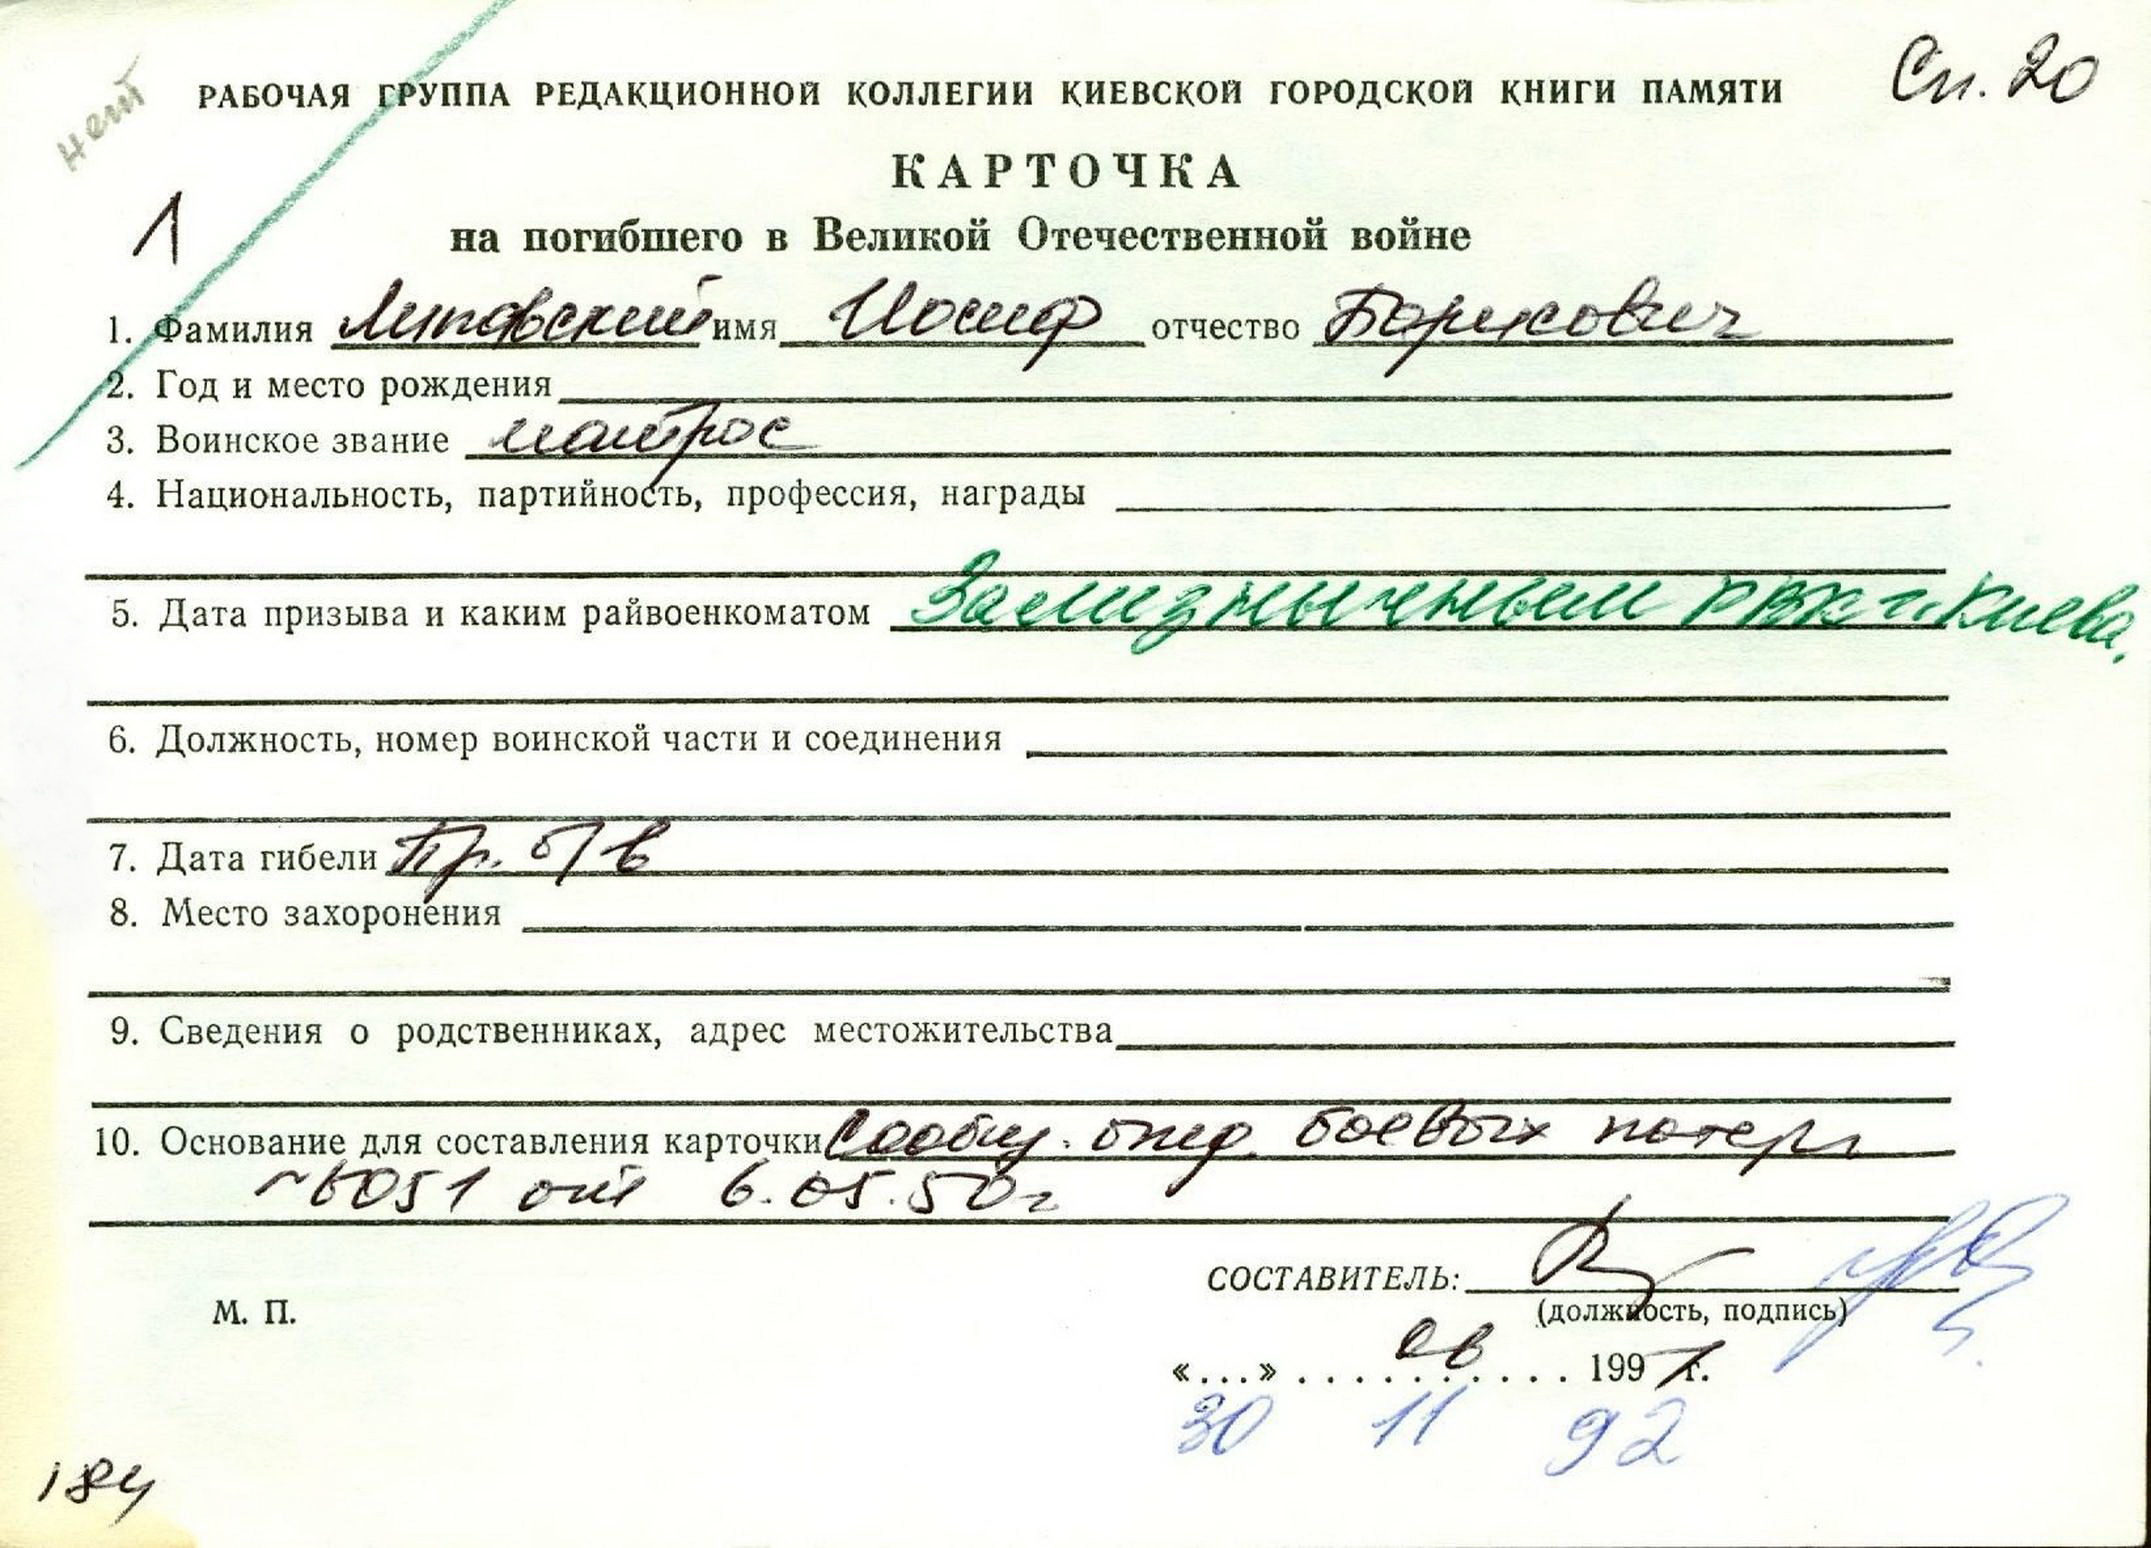 нет
РАБОЧАЯ ГРУППА РЕДАКЦИОННОЙ КОЛЛЕГИИ КИЕВСКОЙ ГОРОДСКОЙ КНИГИ ПАМЯТИ
Сп. 20
КАРТОЧКА
1
на погибшего в Великой Отечественной войне
1. Фамилия Липовский имя Иосиф отчество Борисович
2. Год и место рождения
3. Воинское звание матрос
4. Национальность, партийность, профессия, награды
5. Дата призыва и каким райвоенкоматом Зализнычным РВК г. Киева.
6. Должность, номер воинской части и соединения
7. Дата гибели Пр. б/в
8. Место захоронения
9. Сведения о родственниках, адрес местожительства
10. Основание для составления карточки Сообщ. отд. боевых потерь
6051 от 6.05.50г
СОСТАВИТЕЛЬ:
(должность, подпись)
М. П.
«...» .......... 1991г.
30 11 92
184